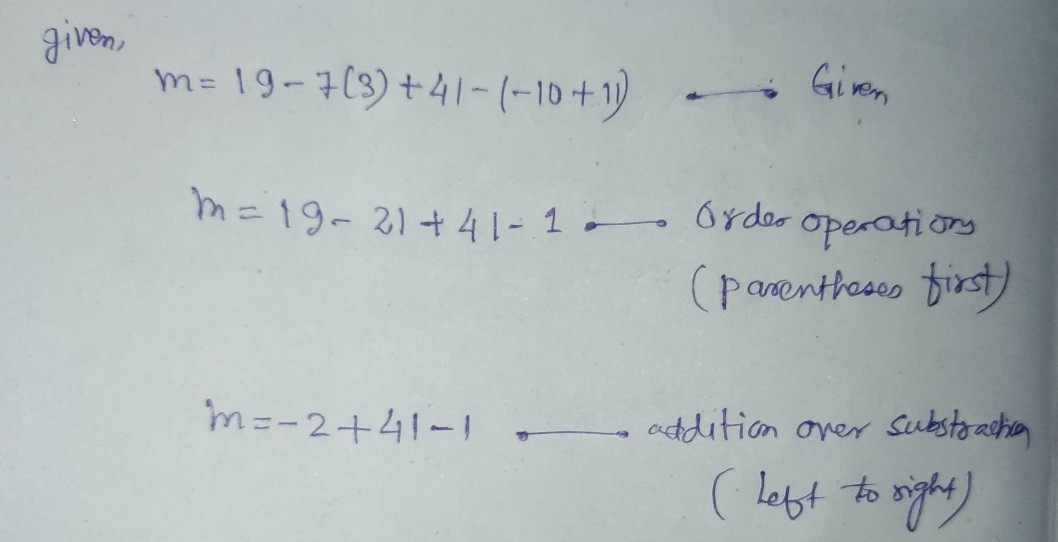 given,
m = 19 - 7(3) + 41 - (-10 + 11) Given
m = 19 - 21 + 41 - 1 Order operations
(parentheses first)
m = -2 + 41 - 1 addition over substraction
(Left to right)